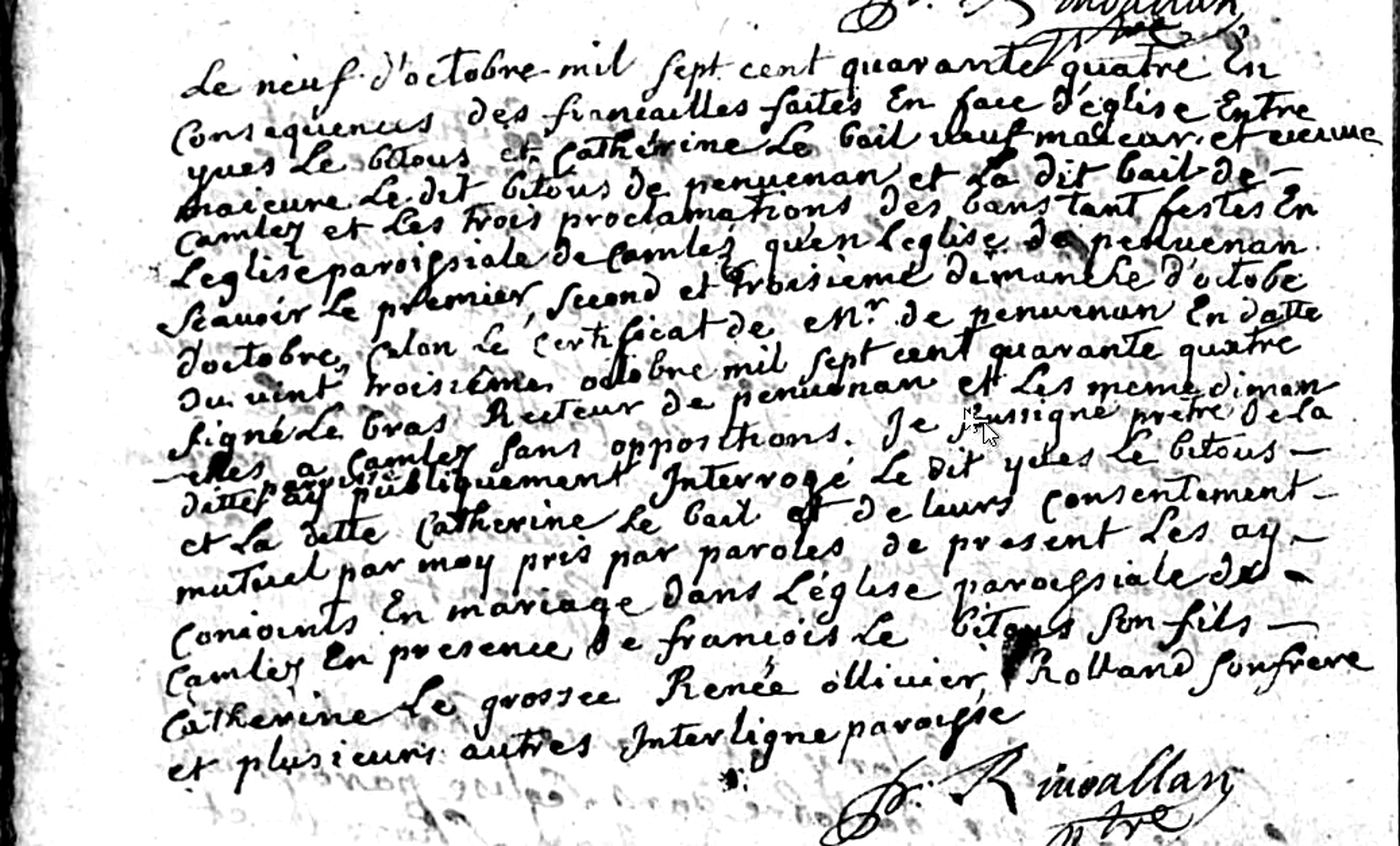 Le neuf d'octobre mil sept cent quarante quatre En
Consequences des fiancailles faites En face d'église Entre
yves Le bitous et Catherine Le bail veuf maieur et veuve
maieure Le dit bitous de penvenan et La dit bail de
Camlez et Les trois proclamations des bans tant festes En
Leglise paroissiale de Camlez qu'en Leglise de penvenan
Scavoir Le premier, second et troisieme dimanche d'octobe
d'octobre, selon Le Certificat de Mr. de penvenan En datte
du vint troisième octobre mil sept cent quarante quatre
signé Le bras Recteur de penvenan et Les meme diman
-ches a Camlez sans oppositions. Je sussigne pretre de La
ditte paroisse ay publiquement Interrogé Le dit yves Le bitous
et La ditte Catherine Le bail et de leurs Consentement
mutuel par moy pris par paroles de present Les ay
Conioints En mariage dans L'église paroissiale de
Camlez En presence de francois Le bitous son fils
Catherine Le grossec Renée ollivier, Rolland son frere
et plusieurs autres Interligne paroisse
R inoallan
ptre